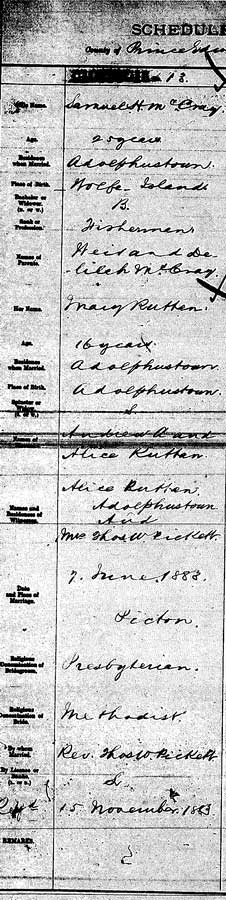 SCHEDULE
County of Prince Edw
13.
His Name. Samuel H. Mc Cray.
Age. 25 years
Residence when Married. Adolphustown.
Place of Birth. Wolfe Island
Bachelor or Widower. (B. or W.) B.
Rank or Profession. Fisherman
Names of Parents. Neil and De-
lilah McCray.
Her Name. Mary Rutten.
Age. 16 years.
Residence when Married. Adolphustown.
Place of Birth. Adolphustown.
Spinster or Widow. (S. or W.) S
Names of Parents. Andrew A and
Alice Rutten.
Names and Residences of Witnesses. Alice Rutten
Adolphustown
And
Mrs Thos W. Pickett.
Date and Place of Marriage. 7. June, 1883.
Picton.
Religious Denomination of Bridegroom. Presbyterian.
Religious Denomination of Bride. Methodist
By whom Married. Rev. Thos W. Pickett
By License or Banns. (L. or B.) L
15 November, 1883
REMARKS.